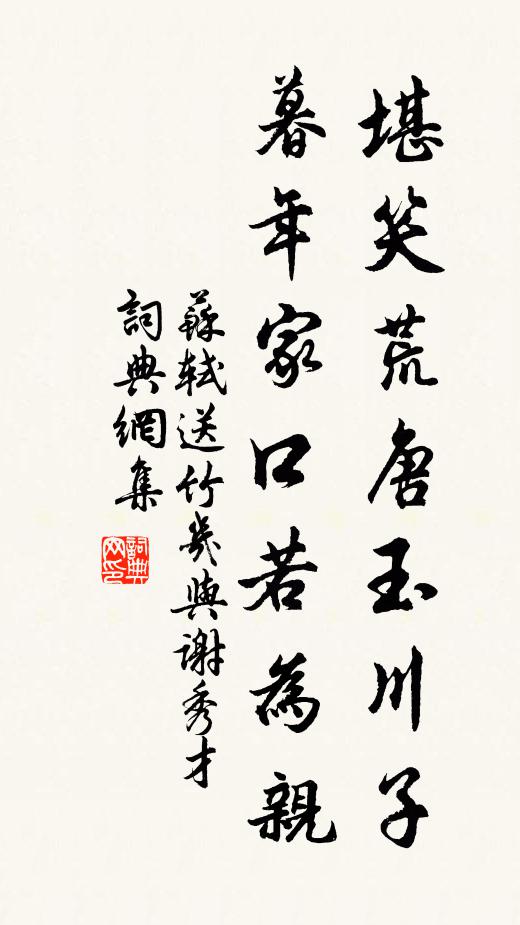 堪笑荒唐玉川子
暮年家口若為親
蘇軾送竹几與謝秀才
詞典網集
詞典網印